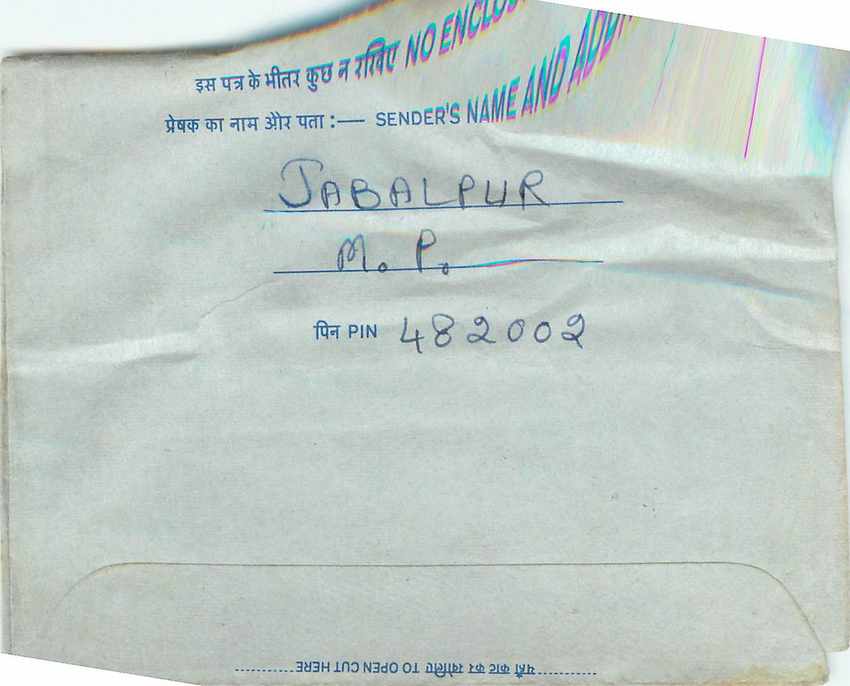 इस पत्र के भीतर कुछ न रखिए NO ENCLOS
प्रेषक का नाम और पता :— SENDER'S NAME AND ADDR
JABALPUR
M. P.
पिन PIN 482002
यहाँ काट कर खोलिए TO OPEN CUT HERE